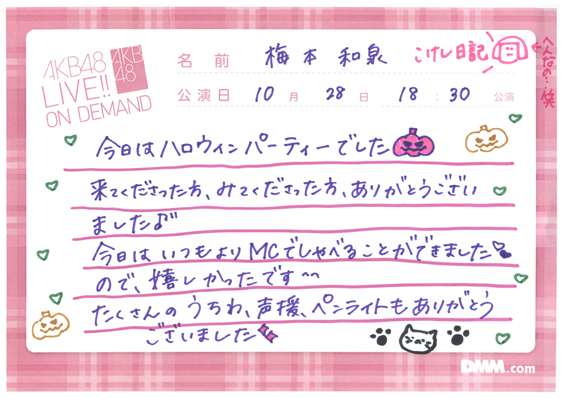 AKB48
LIVE!!
ON DEMAND
AKB
48
名前 梅本 和泉 こけし日記
へんなの… 笑
公演日 10月 28日 18:30 公演
今日はハロウィンパーティーでした
来てくださった方、みてくださった方、ありがとうござい
ました♪
今日はいつもよりMCでしゃべることができました
ので、嬉しかったです〜
たくさんのうちわ、声援、ペンライトもありがとう
ございました
DMM.com